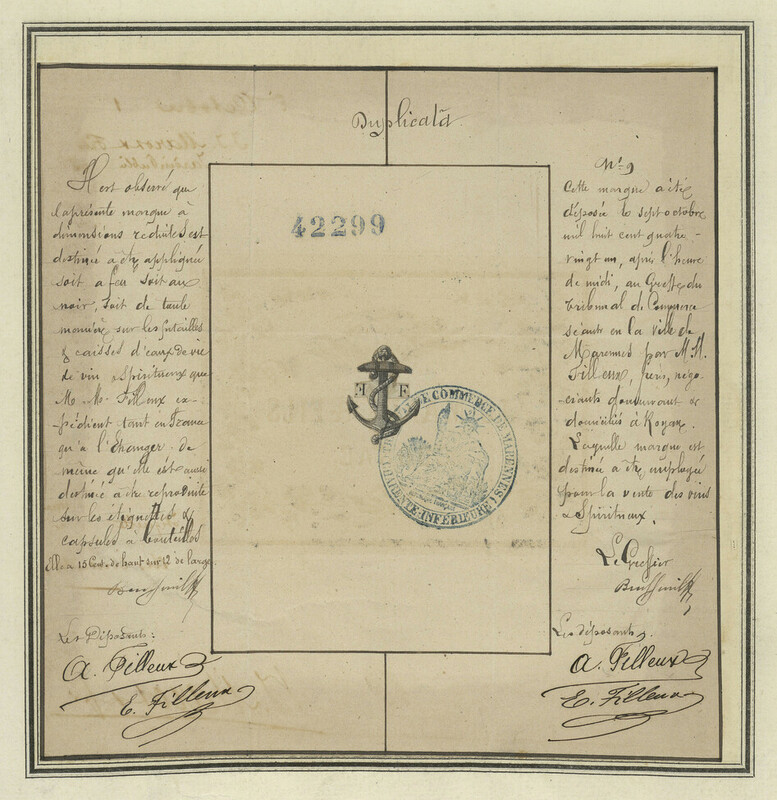 Duplicata
Il est observé que
la présente marque à
dimensions réduites est
destinée à être appliquée
soit à feu soit au
noir, soit de toute
manière sur les futailles
& caisses d'eaux de vie
de vin & spiritueux que
M. M. Filleux ex-
pédient tant en France
qu'à l'étranger. De
même qu'elle est aussi
destinée à être reproduite
sur les étiquettes &
capsules à bouteilles
Elle a 15 Cent. de haut sur 12 de large.
Les Déposants:
A. Filleux
E. Filleux
42299
E F
TRIBUNAL DE COMMERCE DE MARENNES
(CHARENTE-INFERIEURE)
No. 9
Cette marque a été
déposée le sept octobre
mil huit cent quatre-
vingt un, après l'heure
de midi, au Greffe du
tribunal de Commerce
séant en la ville de
Marennes par M. M.
Filleux, frères, négo-
ciants demeurant &
domiciliés à Royan.
Laquelle marque est
destinée à être employée
pour la vente des vins
& Spiritueux.
Le Greffier
Les déposants.
A. Filleux
E. Filleux